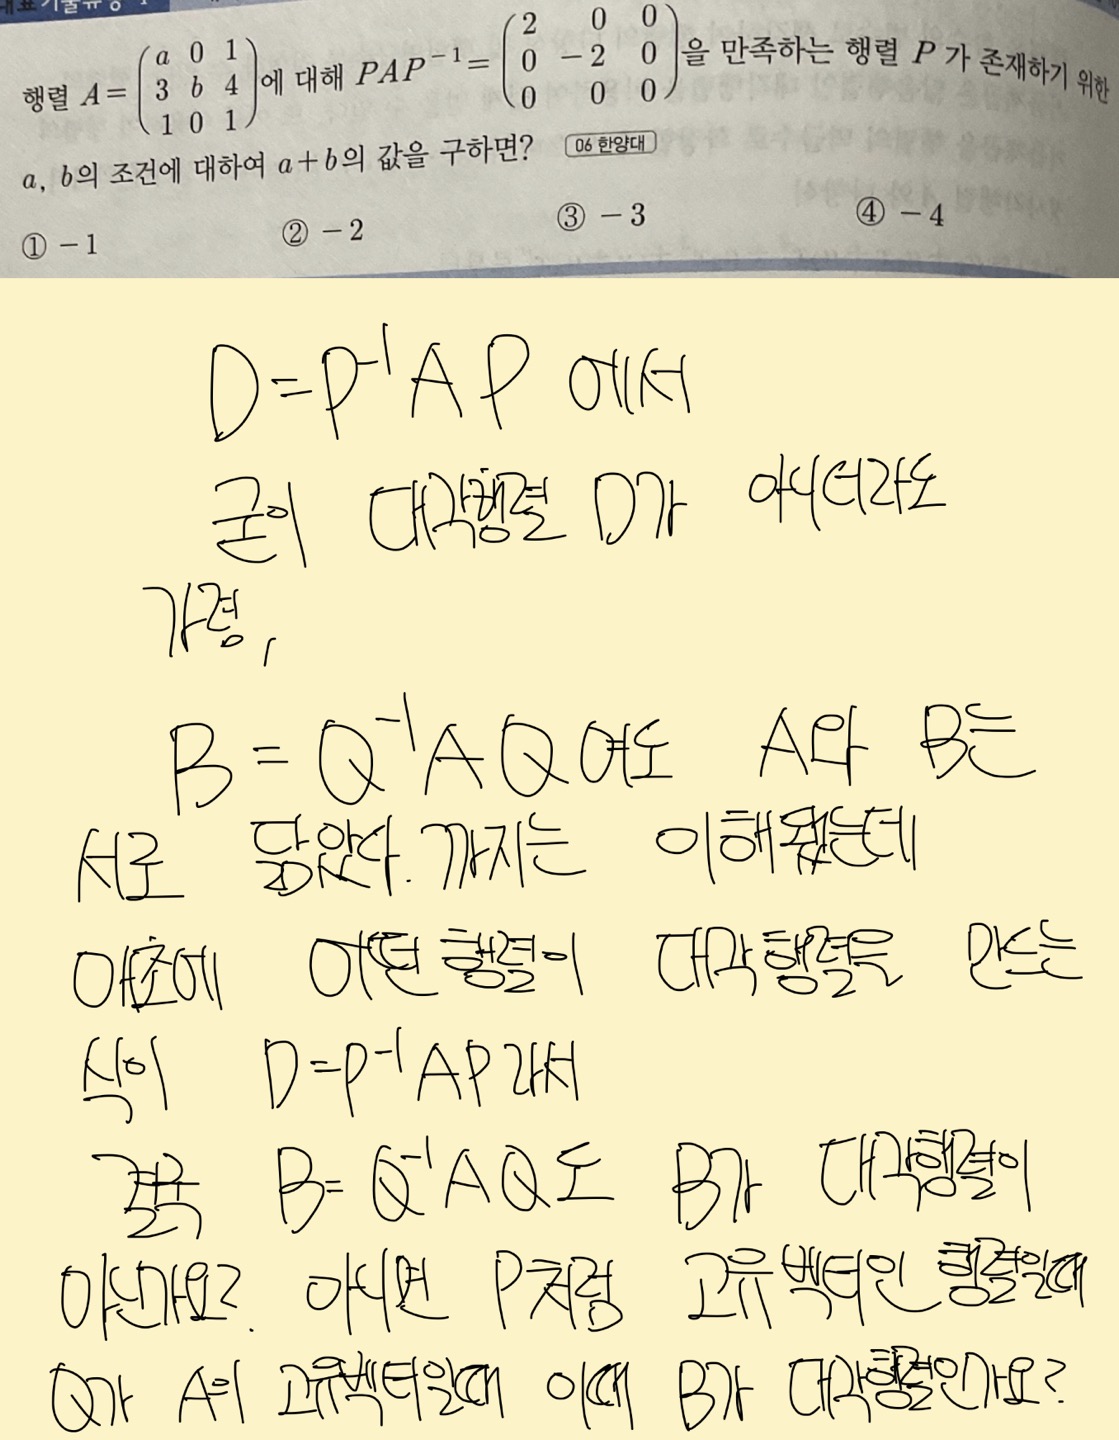 행렬 A=(a 0 1 / 3 b 4 / 1 0 1)에 대해 PAP⁻¹=(2 0 0 / 0 -2 0 / 0 0 0)을 만족하는 행렬 P가 존재하기 위한
a, b의 조건에 대하여 a+b의 값을 구하면? 06 한양대
① -1 ② -2 ③ -3 ④ -4
D=P⁻¹AP 에서
굳이 대각행렬 D가 아니더라도
가령,
B=Q⁻¹AQ여도 A와 B는
서로 닮았다.까지는 이해됐는데
애초에 어떤행렬이 대각행렬을 만드는
식이 D=P⁻¹AP라서
결국 B=Q⁻¹AQ도 B가 대각행렬이
아닌가요? 아니면 P처럼 고유벡터인 행렬일때
Q가 A의 고유벡터일때 이때 B가 대각행렬인가요?